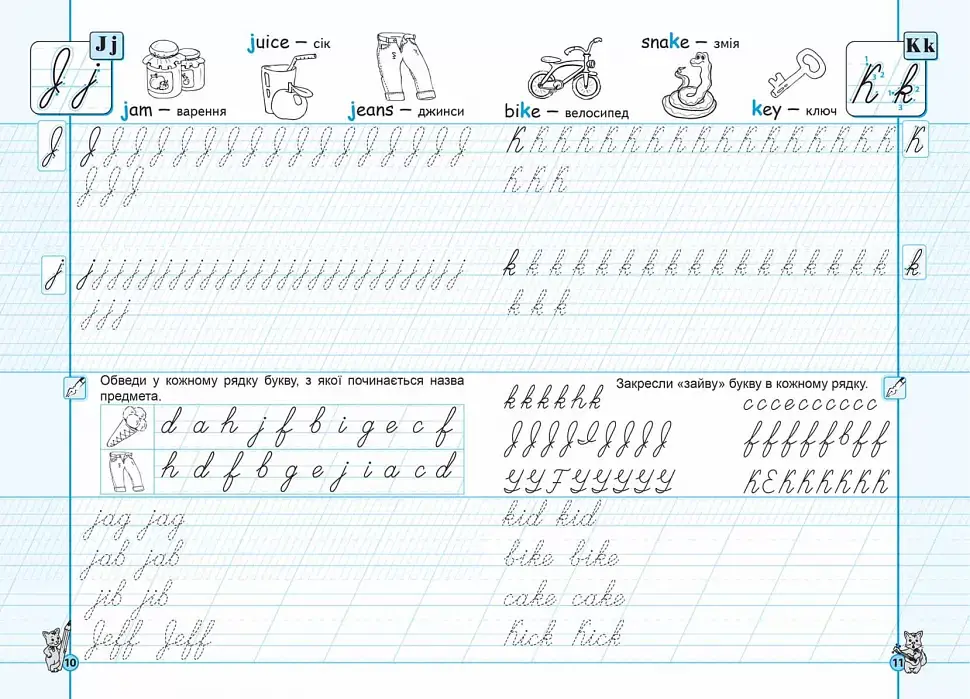 J j
Jj
juice – сік
jam – варення
jeans – джинси
J
J J J J J J J J J J J J J J J J J
J J J
j
j j j j j j j j j j j j j j j j j j j j j j j j
j j j
Обведи у кожному рядку букву, з якої починається назва
предмета.
d a h j f b i g e c f
h d f b g e j i a c d
jag jag
jab jab
jib jib
Jeff Jeff
10
snake – змія
bike – велосипед
key – ключ
Kk
K k
K K K K K K K K K K K K K K K K K
K
K K K
k k k k k k k k k k k k k k k k k
k
k k k
Закресли «зайву» букву в кожному рядку.
k k k k h k
c c c e c c c c c c
J J J J I J J J J
f f f f f b f f
Y Y F Y Y Y Y Y
K E K K K K K K
kid kid
bike bike
cake cake
Kick Kick
11